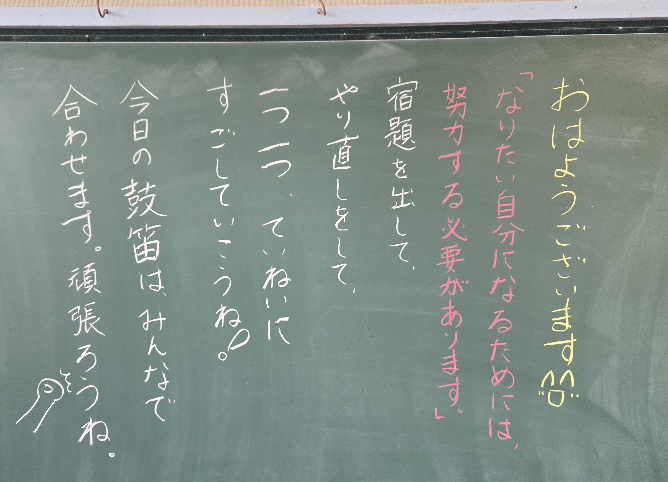 おはようございます
「なりたい自分になるためには、
努力する必要があります。」
宿題を出して、
やり直しをして、
一つ一つ、ていねいに
すごしていこうね!。
今日の鼓笛は、みんなで
合わせます。頑張ろうね。